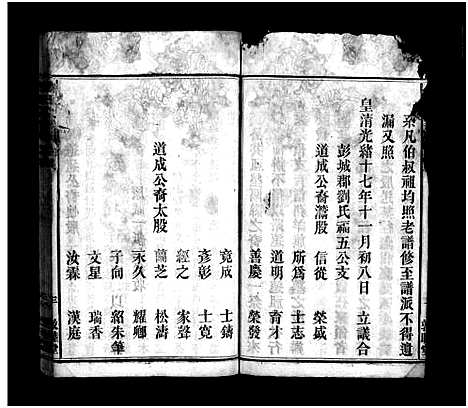 來凡伯叔祖均照老譜修至譜派不得遺
漏又照
皇清光緒十七年十一月初八日　立議合
彭城郡劉氏福五公支
道成公裔濤股　信從　榮盛
所為　士志
道明　育才
善慶　榮發
竟成　士鑄
彥彰　士寬
道成公裔太股　經之　家聲
蘭芝　松濤
永久　耀卿
子向　以紹朱筆
文星　瑞香
汝霖　漢庭